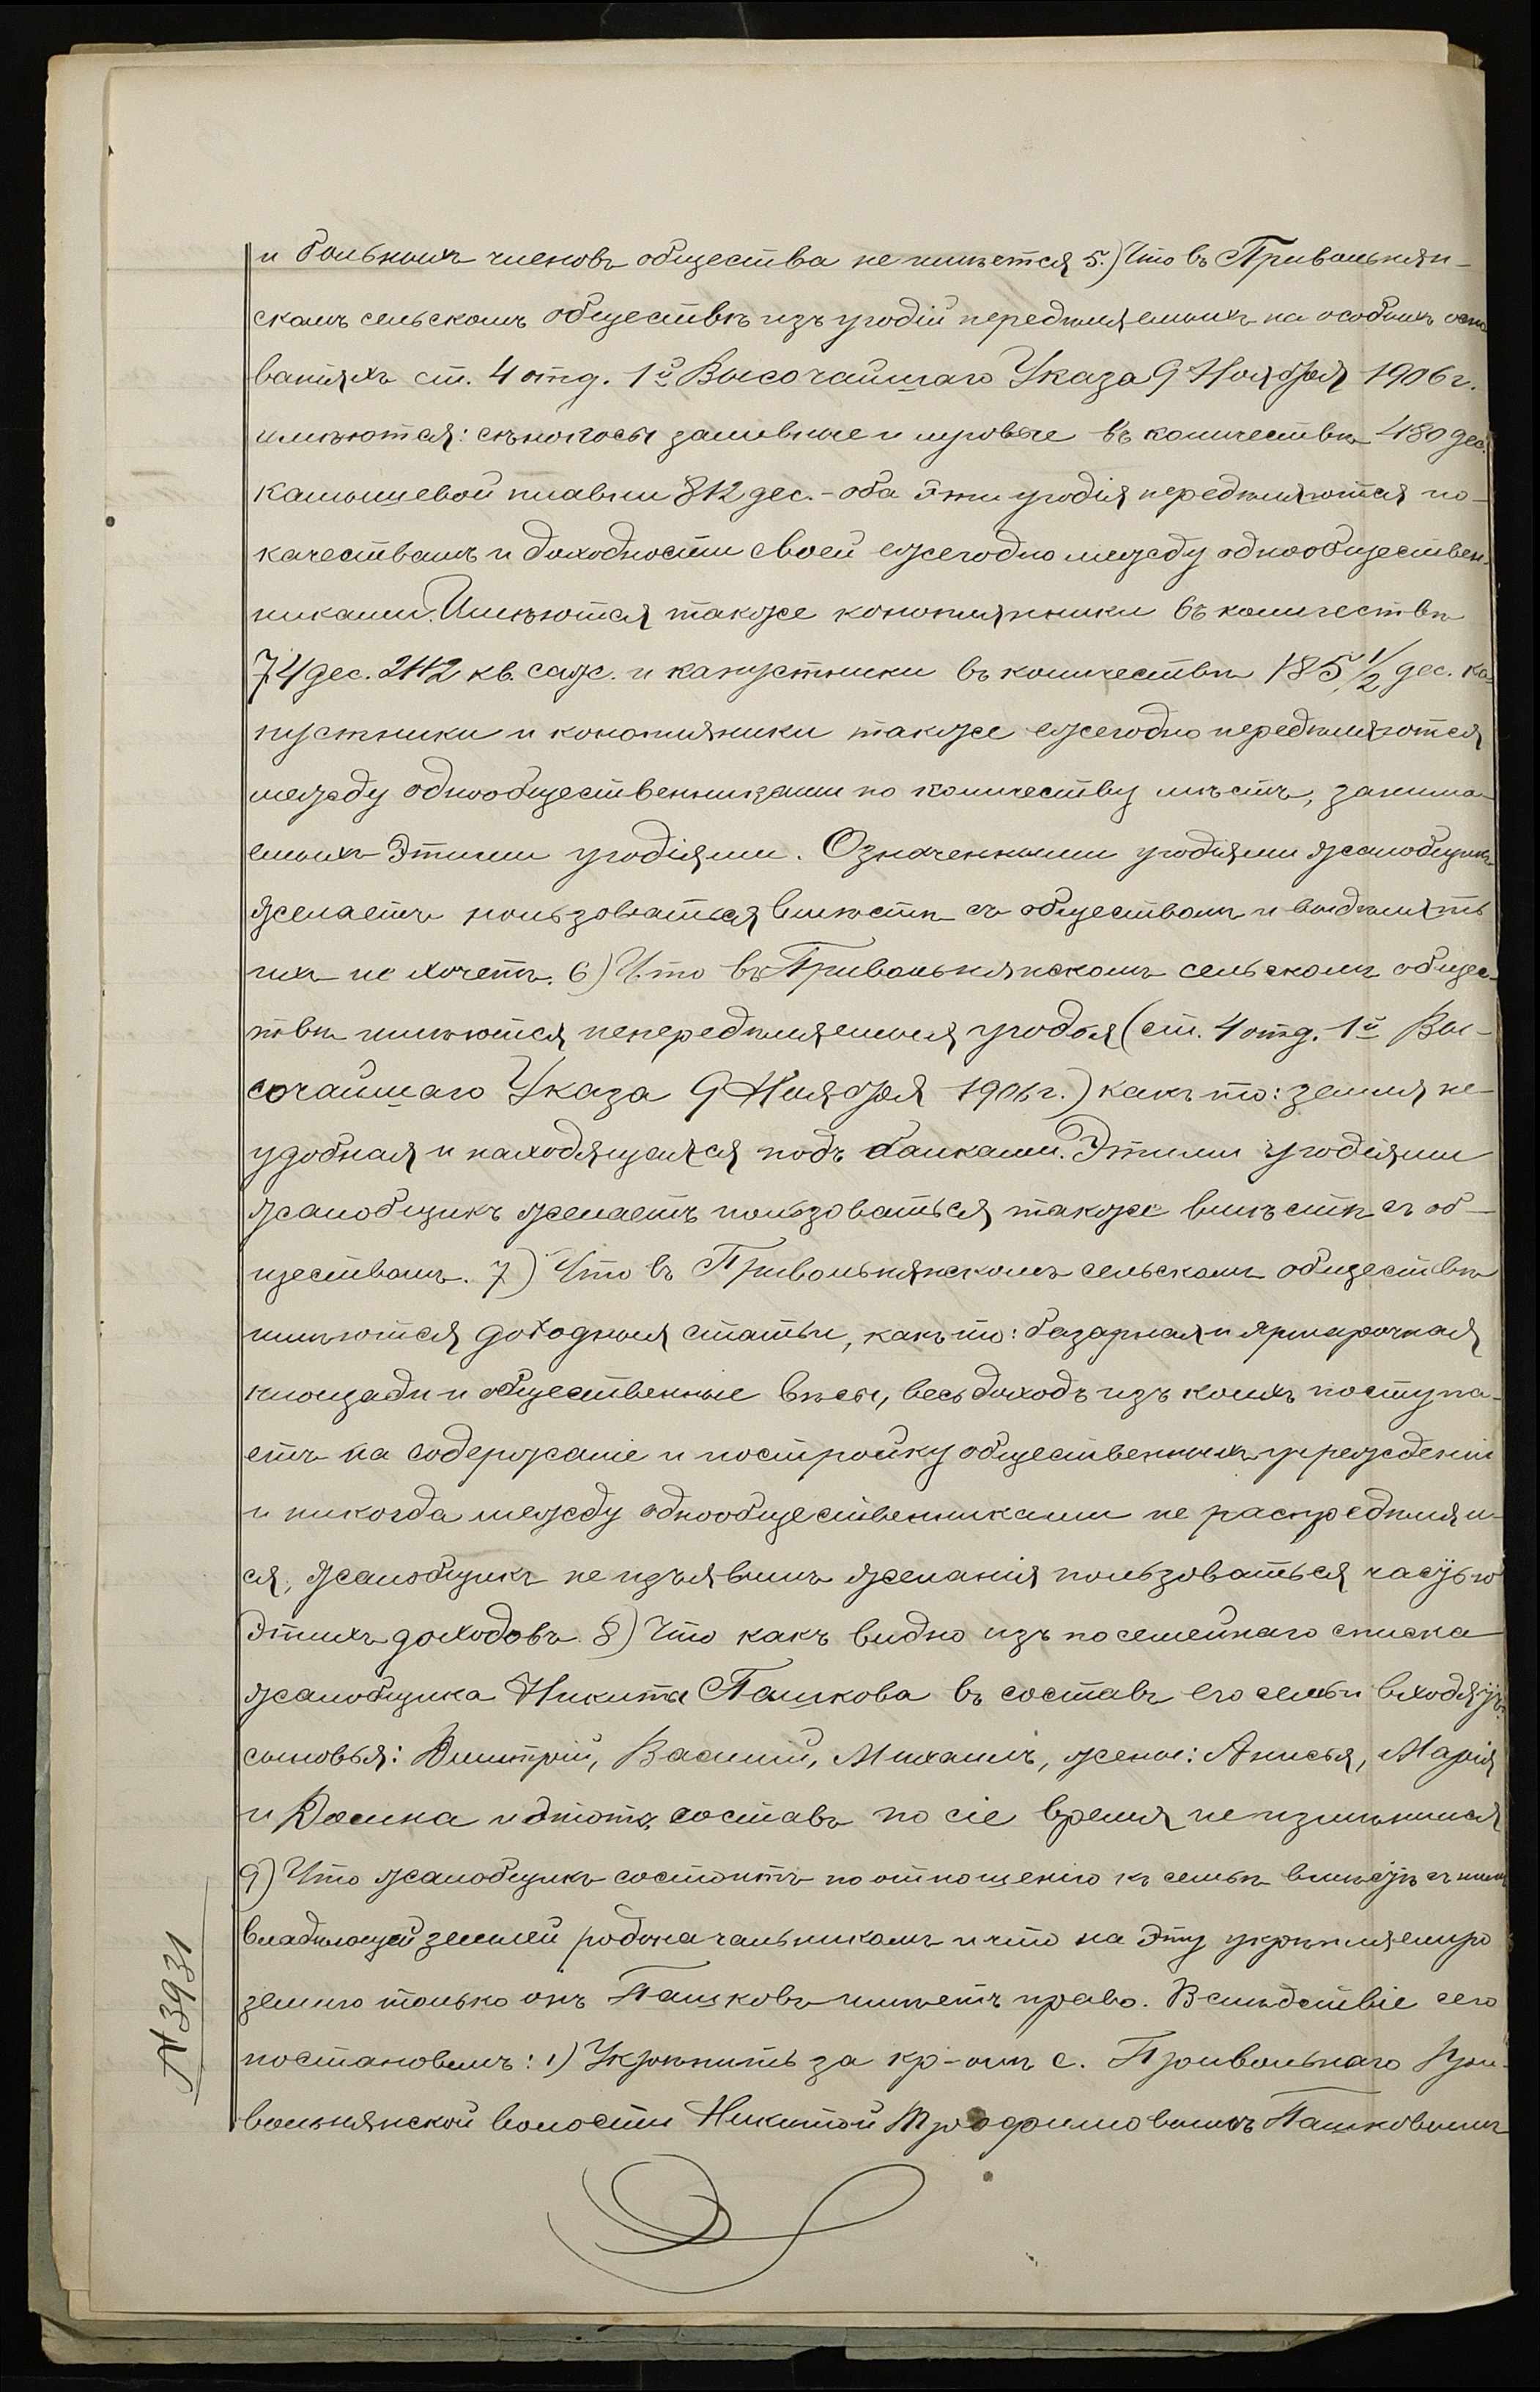 и больныхъ членовъ общества не имѣется 5.) Что въ Привольнян-
скомъ сельскомъ обществѣ изъ угодій передѣляемыхъ на особыхъ осно
ваніяхъ ст. 4 отд. 1й Высочайшаго Указа 9 Ноября 1906 г.
имѣются: сѣнокосы заливные и луговые въ количествѣ 480 дес.
камышевой плавни 812 дес. - оба эти угодія передѣляются по-
качествамъ и доходности своей ежегодно между однообществен-
никами. Имѣются также конопляники въ количествѣ
74 дес. 2112 кв. саж. и капустники въ количествѣ 185 1/2 дес. ка-
пустники и конопляники также ежегодно передѣляются
между однообщественниками по количеству мѣстъ, занима-
емыхъ этими угодіями. Означенными угодіями жалобщикъ
желаетъ пользоваться вмѣстѣ съ обществомъ и выдѣлять
ихъ не хочетъ. 6) Что въ Привольнянскомъ сельскомъ общес-
твѣ имѣются непередѣляемыя угодья (ст. 4 отд. 1й Вы-
сочайшаго Указа 9 Ноября 1906 г.) какъ то: земля не-
удобная и находящаяся подъ балками. Этими угодіями
жалобщикъ желаетъ пользоваться также вмѣстѣ съ об-
ществомъ. 7) Что въ Привольнянскомъ сельскомъ обществѣ
имѣются доходныя статьи, какъ то: базарная и ярмарочная
площади и общественные вѣсы, весь доходъ изъ коихъ поступа-
етъ на содержаніе и постройку общественныхъ учрежденій
и никогда между однообщественниками не распредѣляли-
ся, жалобщикъ не изъявилъ желанія пользоваться частью
этихъ доходовъ. 8) Что какъ видно изъ посемейнаго списка
жалобщика Никиты Пашкова въ составъ его семьи входятъ:
сыновья: Дмитрій, Василій, Михаилъ, жены: Анисья, Марія
и Домна и этотъ составъ по сіе время не измѣнился
9) Что жалобщикъ состоитъ по отношенію къ семьѣ вмѣстѣ съ нимъ
владѣющей землей родоначальникомъ и что на эту укрѣпляемую
землю только онъ Пашковъ имѣетъ право. Вслѣдствіе сего
постановилъ: 1) Укрѣпить за кр-омъ с. Привольнаго При-
вольнянской волости Никитой Трофимовымъ Пашковымъ
№ 3931